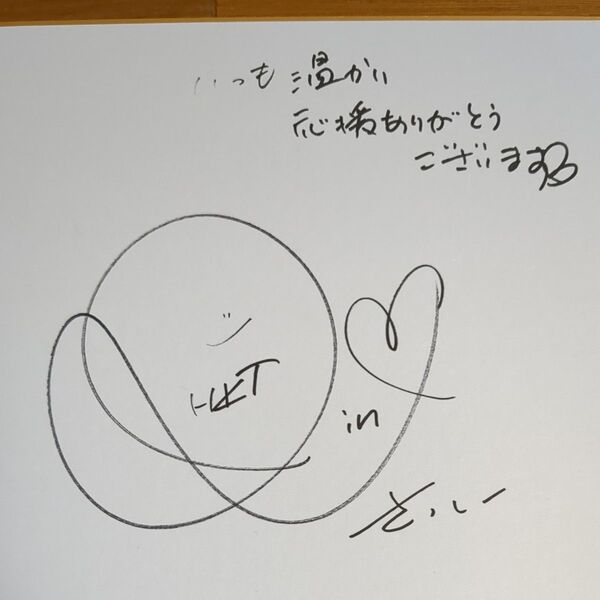 いつも温かい
応援ありがとう
ございます
HKT
in
さっしー